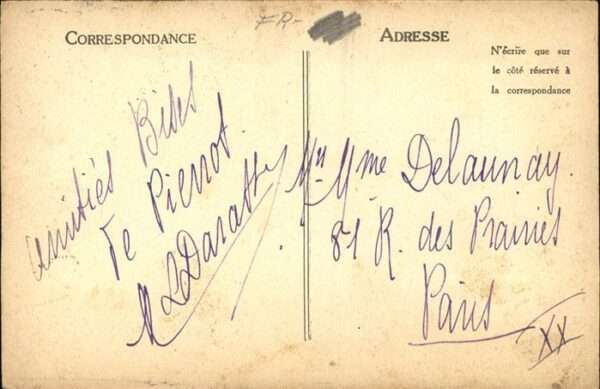 FR-
CORRESPONDANCE
ADRESSE
N'écrire que sur
le côté réservé à
la correspondance
Amitiés Bises
de Pierrot
Mr Mme Delaunay.
81 R. des Prairies
Paris
XX